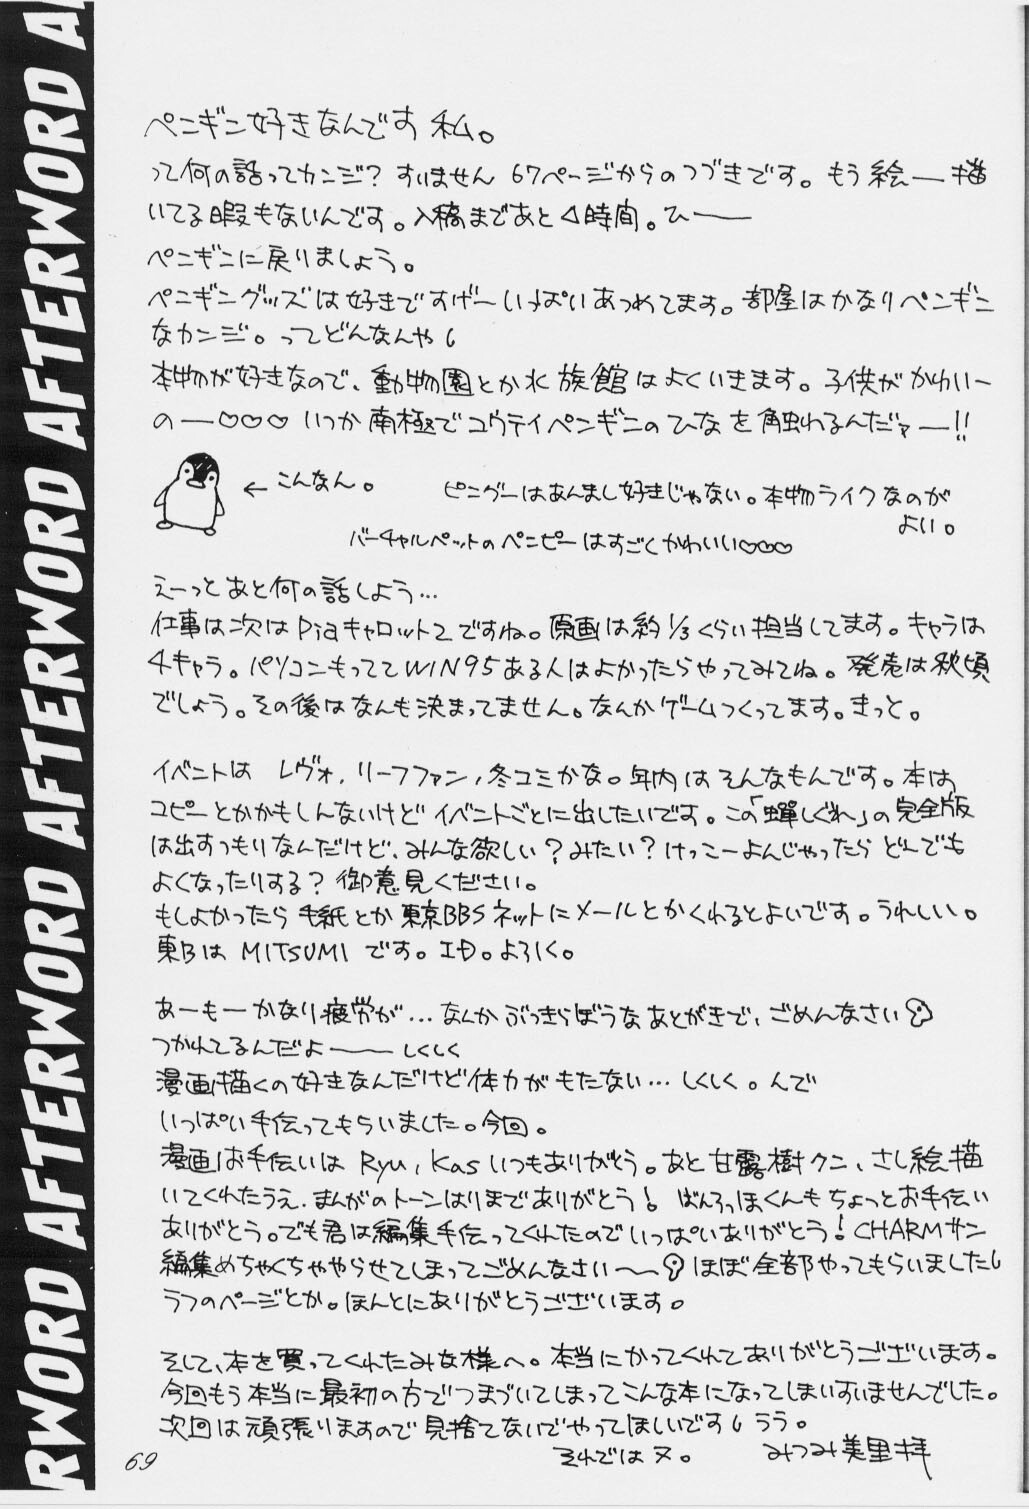 AFTERWORD AFTERWORD AFTERWORD AFTERWORD
ペンギン好きなんです 私。
って何の話ってカンジ? すいません 67ページからのつづきです。もう絵ー描
いてる暇もないんです。入稿まであと4時間。ひーー
ペンギンに戻りましょう。
ペンギングッズは好きですげーいっぱいあつめてます。部屋はかなりペンギン
なカンジ。ってどんなんや
本物が好きなので、動物園とか水族館はよくいきます。子供がかわいー
のー♡♡♡ いつか南極でコウテイペンギンのひなを触わるんだァー!!
← こんなん。
ピングーはあんまし好きじゃない。本物ライクなのが
よい。
バーチャルペットのペンピーはすごくかわいい♡♡♡
えーっとあと何の話しよう…
仕事は次はPiaキャロット2ですね。原画は約1/3くらい担当してます。キャラは
4キャラ。パソコンもっててWIN95ある人はよかったらやってみてね。発売は秋頃
でしょう。その後はなんも決まってません。なんかゲームつくってます。きっと。
イベントは レヴォ、リーフファン、冬コミかな。年内はそんなもんです。本は
コピーとかかもしんないけどイベントごとに出したいです。この「蝉しぐれ」の完全版
は出すつもりなんだけど、みんな欲しい?みたい?けっこーよんじゃったらどーでも
よくなったりする? 御意見ください。
もしよかったら手紙とか東京BBSネットにメールとかくれるとよいです。うれしい。
東Bは MITSUMI です。ID。よろしく。
あーもーかなり疲労が…なんかぶっきらぼうなあとがきで、ごめんなさい
つかれてるんだよーー しくしく
漫画描くの好きなんだけど体力がもたない…しくしく。んで
いっぱい手伝ってもらいました。今回。
漫画お手伝いは Ryu, Kas いつもありがとう。あと甘露樹クン、さし絵描
いてくれたうえ、まんがのトーンはりまでありがとう! ばんろっほくんもちょっとお手伝い
ありがとう。でも君は編集手伝ってくれたのでいっぱいありがとう! CHARMサン
編集めちゃくちゃやらせてしまってごめんなさい〜〜 ほぼ全部やってもらいました
ラフのページとか。ほんとにありがとうございます。
そして、本を買ってくれたみな様へ。本当にかってくれてありがとうございます。
今回もう本当に最初の方でつまづいてしまってこんな本になってしまいすいませんでした。
次回は頑張りますので見捨てないでやってほしいです うう。
それではヌ。 みつみ美里拝
69